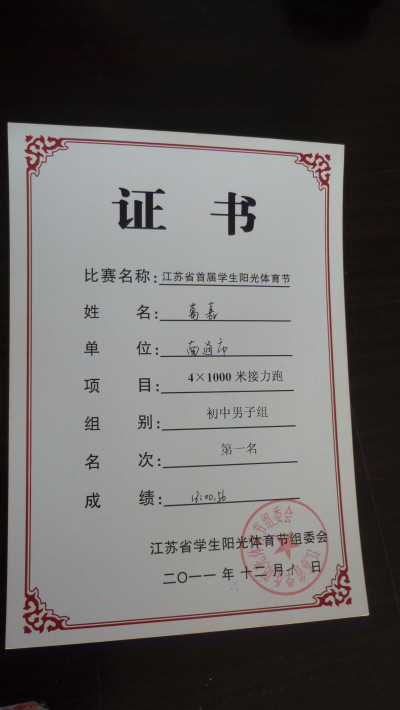 证 书
比赛名称：江苏省首届学生阳光体育节
姓 名：
单 位：南通市
项 目：4×1000 米接力跑
组 别：初中男子组
名 次：第一名
成 绩：
江苏省学生阳光体育节组委会
二〇一一 年 十二 月 日